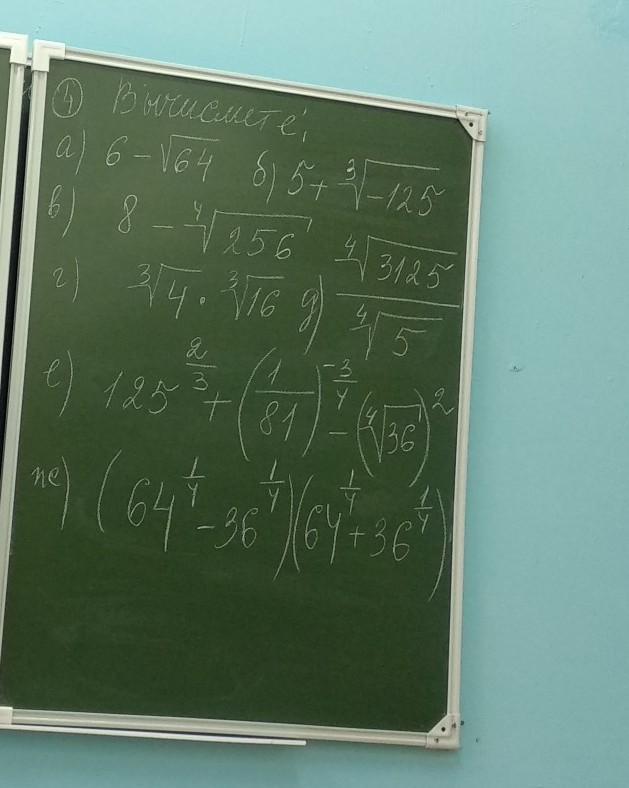 ④ Вычислите:
а) 6 − √64 б) 5 + ∛−125
в) 8 − ∜256
г) ∛4 · ∛16 д) ∜3125 / ∜5
е) 125^(2/3) + (1/81)^(−3/4) − (∜36)^2
ж) (64^(1/4) − 36^(1/4))(64^(1/4) + 36^(1/4))